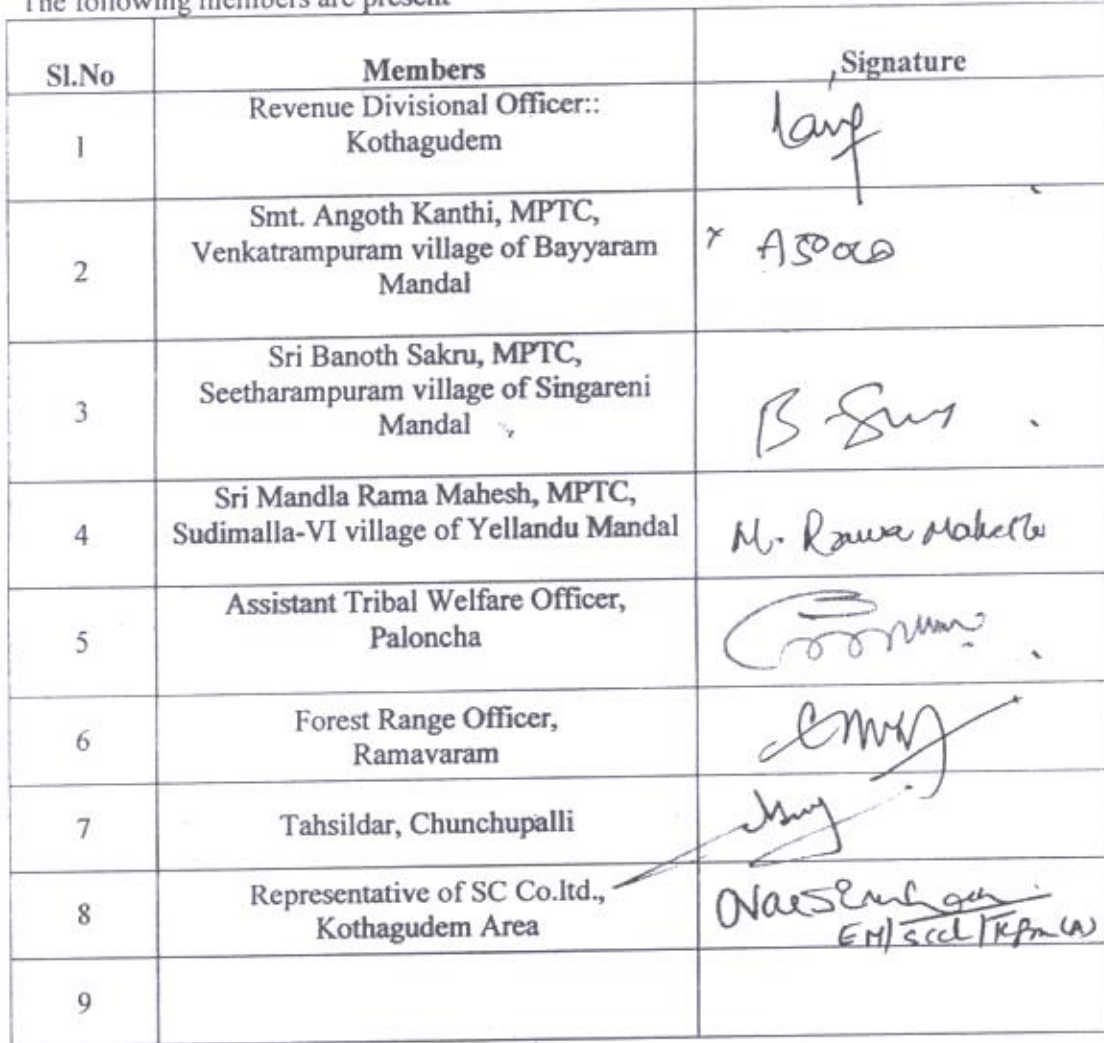 The following members are present
Sl.No Members Signature
1 Revenue Divisional Officer::
Kothagudem
2 Smt. Angoth Kanthi, MPTC,
Venkatrampuram village of Bayyaram
Mandal
3 Sri Banoth Sakru, MPTC,
Seetharampuram village of Singareni
Mandal
B
4 Sri Mandla Rama Mahesh, MPTC,
Sudimalla-VI village of Yellandu Mandal
M. Rama Mahesh
5 Assistant Tribal Welfare Officer,
Paloncha
6 Forest Range Officer,
Ramavaram
7 Tahsildar, Chunchupalli
8 Representative of SC Co.ltd.,
Kothagudem Area
EM/SCCL/KGM(A)
9